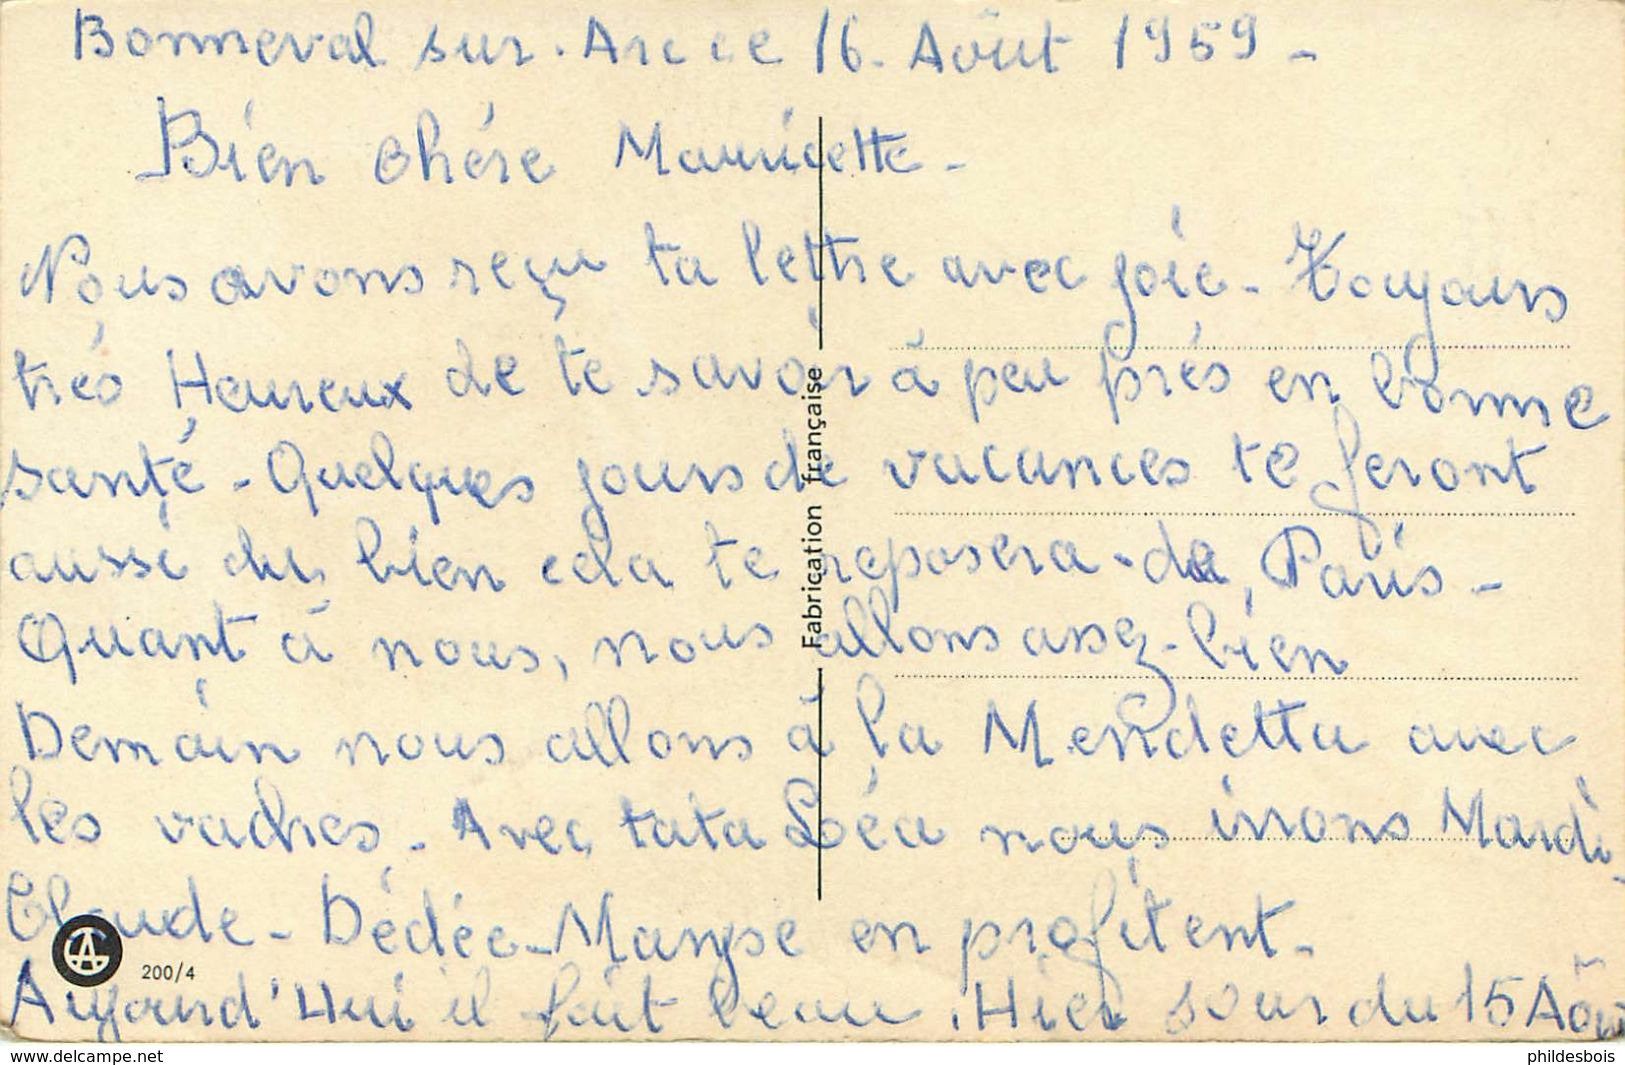 Bonneval sur. Arc ce 16. Août 1959 -
Bien Chère Mauricette -
Nous avons reçu ta lettre avec joie - Toujours
très Heureux de te savoir à peu près en bonne
santé - Quelques jours de vacances te feront
aussi du bien cela te reposera - de Paris -
Quant à nous, nous allons assez - bien
Demain nous allons à la Mendetta avec
les vaches - Avec tata Léa nous irrons Mardi
Claude - Dédée - Maryse en profitent -
Aujourd'Hui il fait beau. Hier jour du 15 Aôu
Fabrication française
CGA
200/4
www.delcampe.net
phildesbois